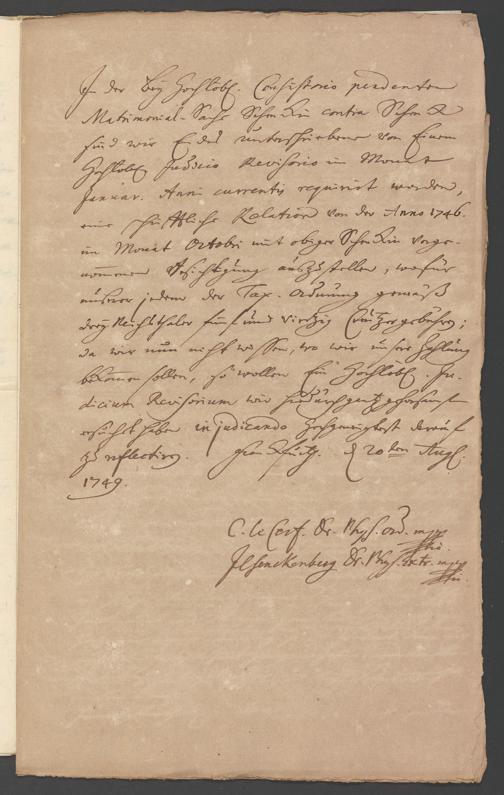 In der bey Hochlöbl. Consistorio pendenten
Matrimonial-Sache Schmidin contra Schmidt
sind wir Endes unterschriebene von Einem
Hochlöbl. Judicio Revisorio im Monat
Januar. Anni currentis requirirt worden,
eine schrifftliche Relation von der Anno 1746.
im Monat Octobri mit obiger Schmidin vorge-
nommenen Besichtigung auszustellen, wofür
unserer jedem der Tax-Ordnung gemäß
drey Reichsthaler fünf und vierzig Creutzer gebühren;
da wir nun nicht wissen, wo wir unsere Zahlung
bekommen sollen, so wollen Ein Hochlöbl. Ju-
dicium Revisorium wir hiedurch gantz gehorsamst
ersucht haben in judicando Hochgeneigtest darauf
zu reflectiren. Franckfurth. d 20ten Aug.
1749.
C. le Cerf. Dr. Phys. ord. mpp
JC Senckenberg Dr. Phys. extr. mpp